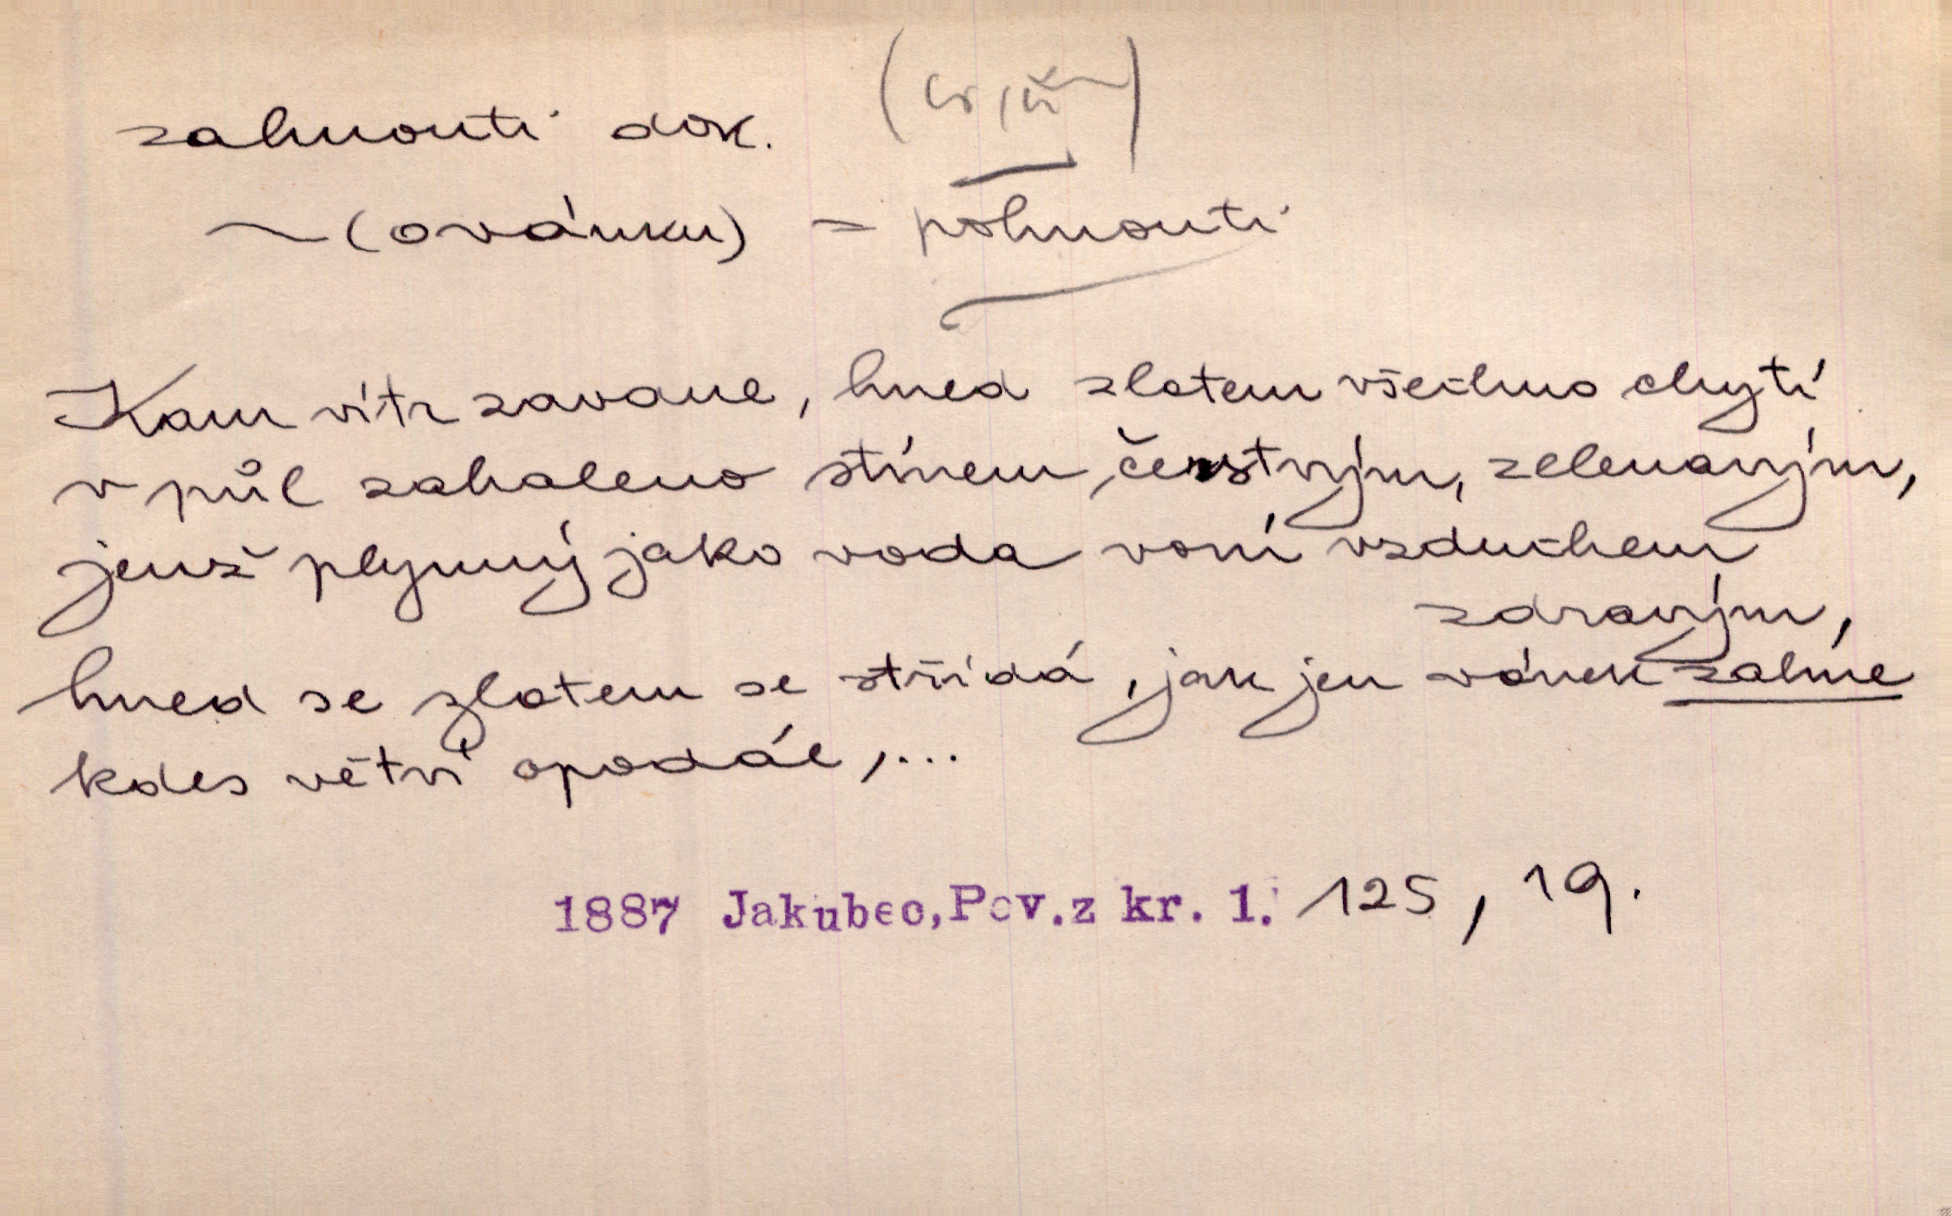 zahnouti dok.
~ (o vánku) = pohnouti
Kam vítr zavane, hned zlatem všechno chytí
v půl zahaleno stínem, čerstvým, zelenavým,
jenž plynný jako voda voní vzduchem
zdravým,
hned se zlatem se střídá, jak jen vánek zahne
kdes větví opodál,...
1887 Jakubec, Pov. z kr. 1. 125, 19.